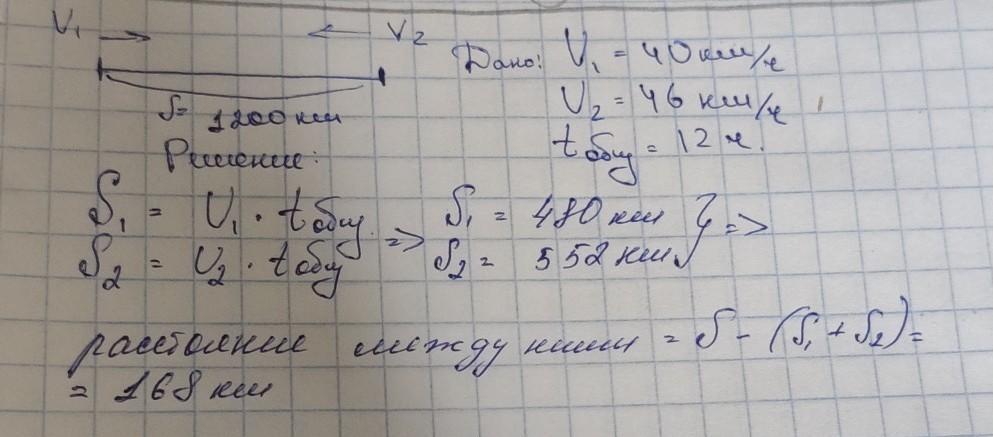 V₁ → ← V₂
Дано: V₁ = 40 км/ч
S = 1200 км
V₂ = 46 км/ч
t общ = 12 ч.
Решение:
S₁ = V₁ · t общ. => S₁ = 480 км } =>
S₂ = V₂ · t общ S₂ = 552 км
расстояние между ними = S - (S₁ + S₂) =
= 168 км